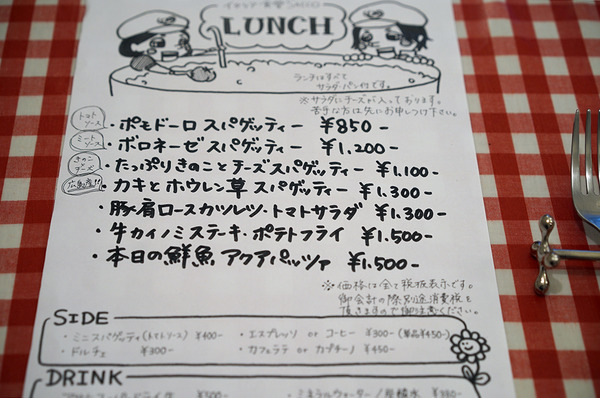 イタリア食堂 SACCO
LUNCH
ランチはすべて
サラダ・パン付です。
※サラダにチーズが入っております。
苦手な方は先にお申しつけ下さい。
トマトソース ・ポモドーロ スパゲッティー ¥850-
ミートソース ・ボロネーゼ スパゲッティー ¥1.200-
きのことチーズ ・たっぷりきのことチーズスパゲッティー ¥1.100-
広島産!! ・カキとホウレン草 スパゲッティー ¥1.300-
・豚肩ロースカツレツ・トマトサラダ ¥1.300-
・牛カイノミステーキ・ポテトフライ ¥1.500-
・本日の鮮魚 アクアパッツァ ¥1.500-
※価格は全て税抜表示です。
御会計の際別途消費税を
頂きますので御注意ください。
SIDE
・ミニスパゲッティ(トマトソース) ¥400- ・エスプレッソ or コーヒー ¥300-(単品¥450-)
・ドルチェ ¥300- ・カフェラテ or カプチーノ ¥450-
DRINK
¥500- ・ミネラルウォーター/炭酸水 ¥350-